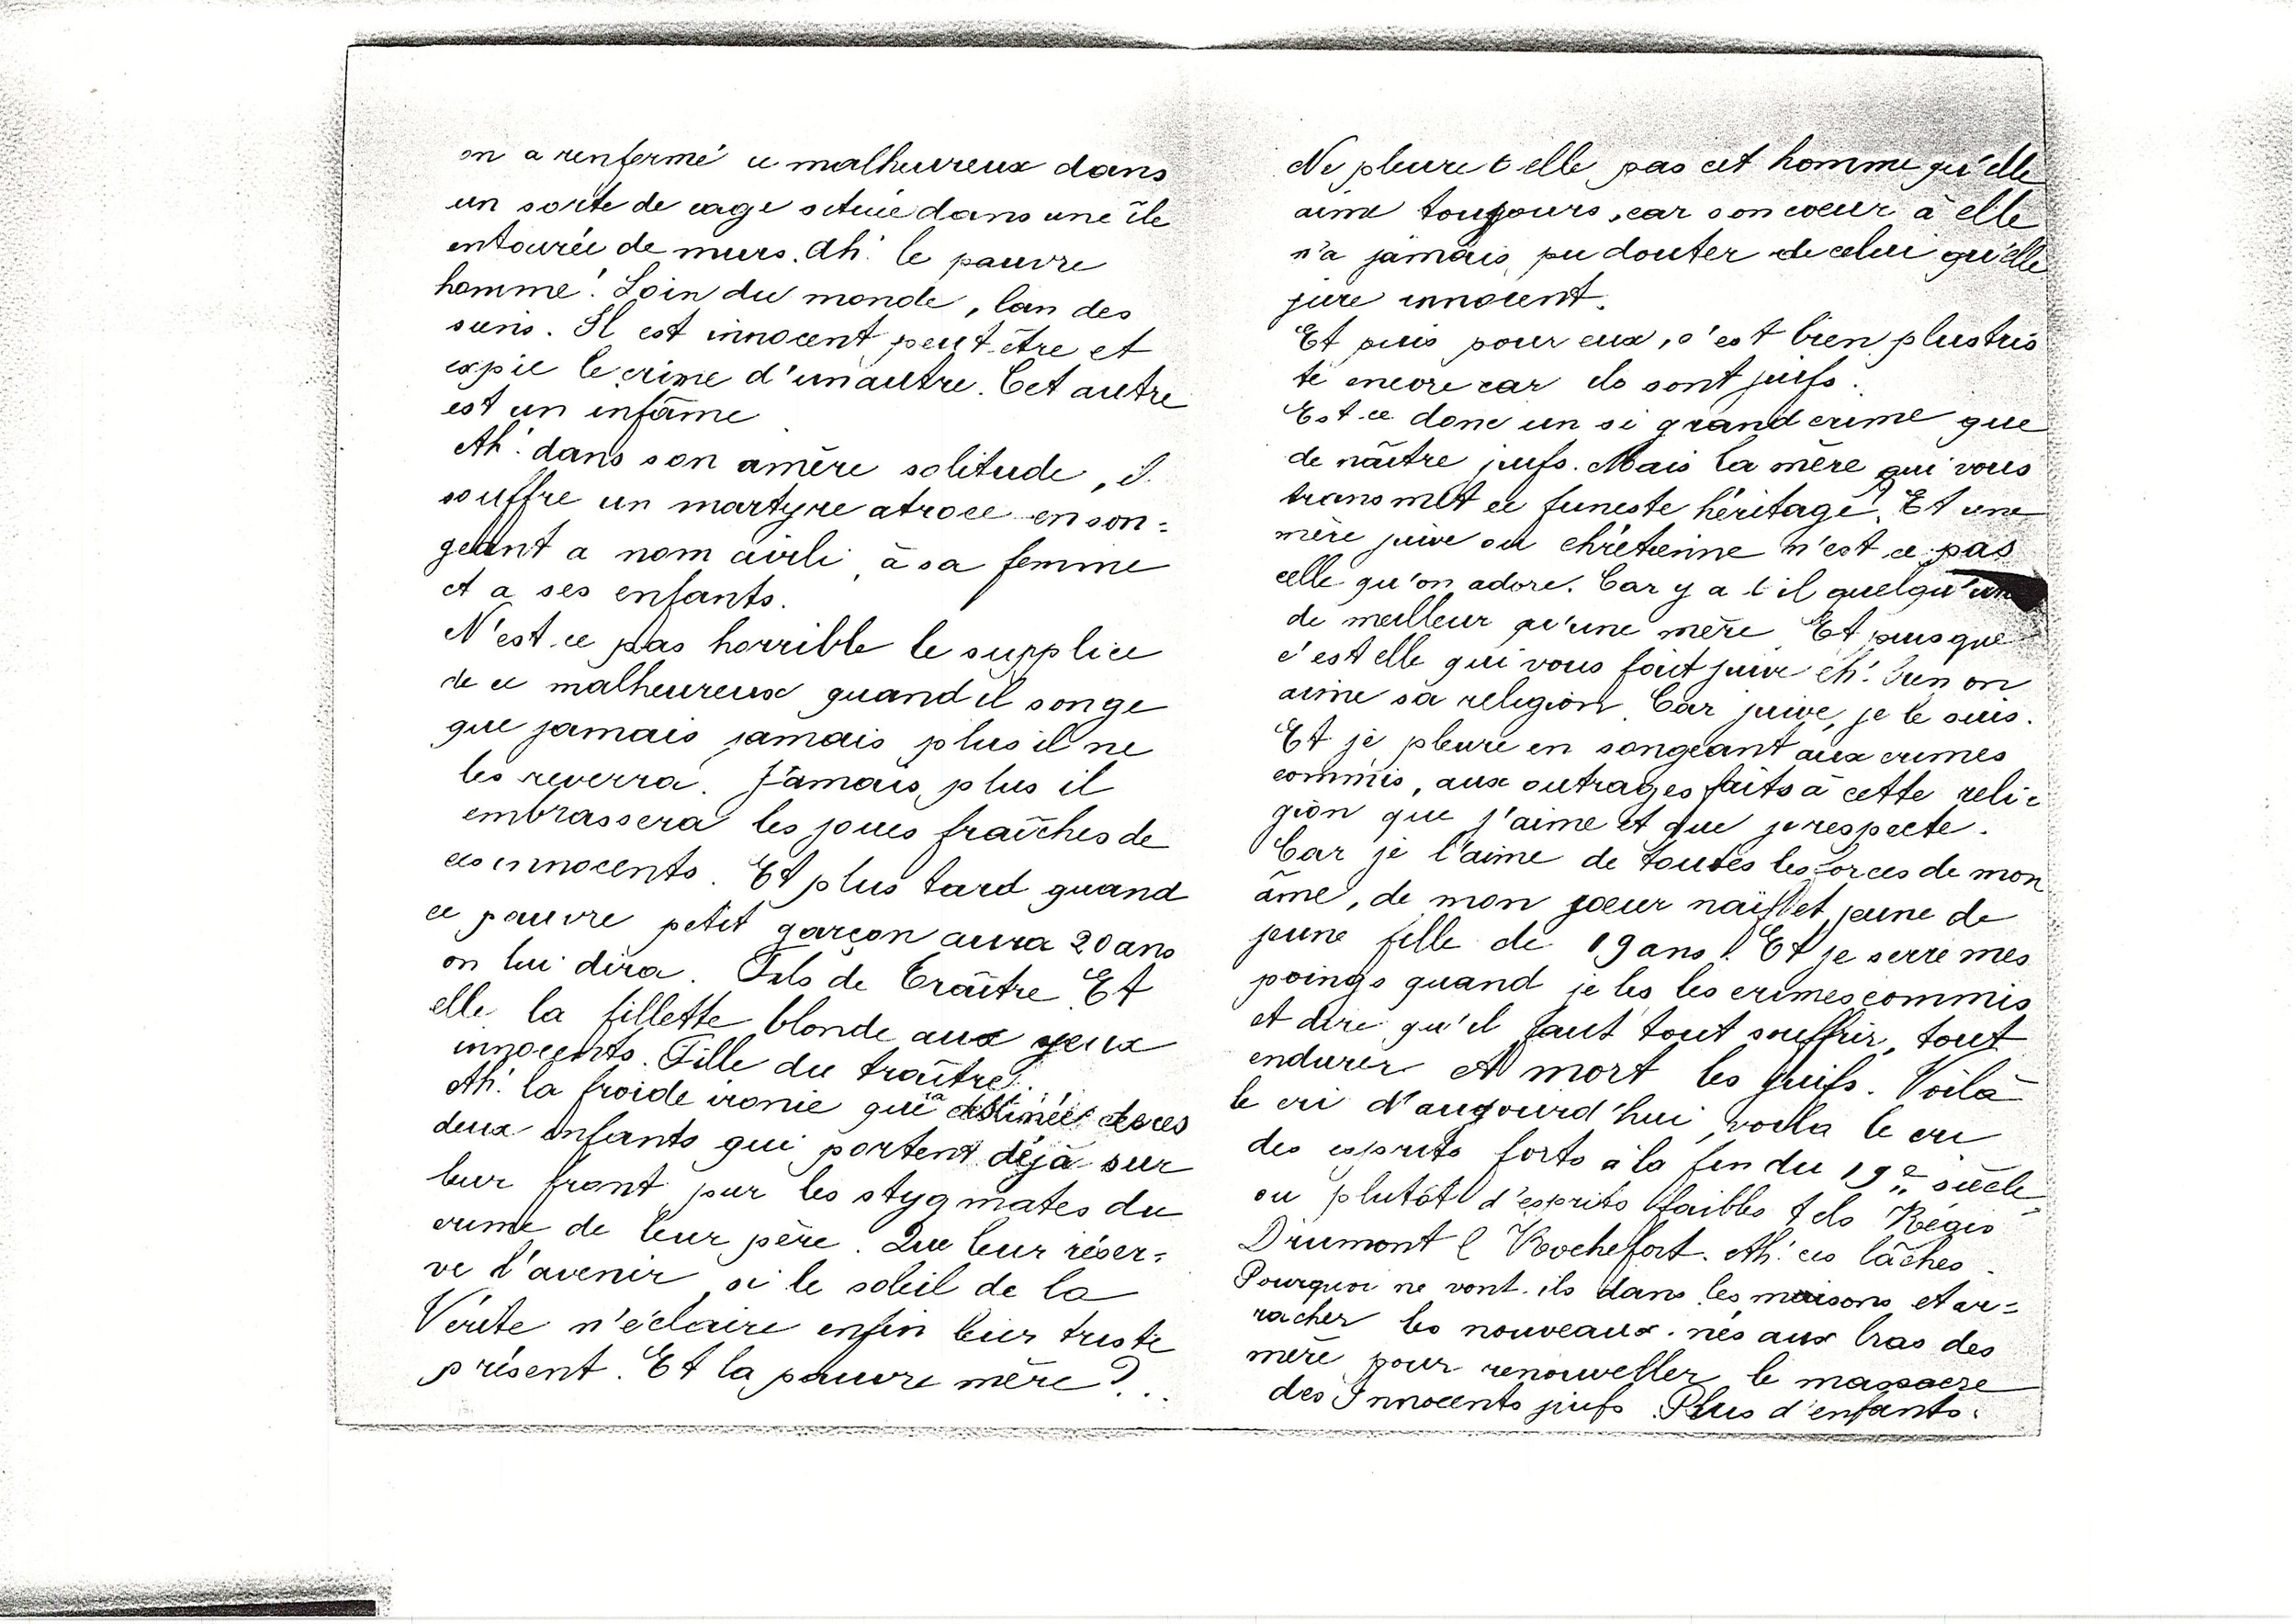 on a renfermé ce malheureux dans
un sorte de cage située dans une île
entourée de murs. Ah! le pauvre
homme! Loin du monde, loin des
siens. Il est innocent peut-être et
expie le crime d'un autre. Cet autre
est un infâme
Ah! dans son amère solitude, il
souffre un martyre atroce en son=
geant a nom avili, à sa femme
et a ses enfants.
N'est-ce pas horrible le supplice
de ce malheureux quand il songe
que jamais jamais plus il ne
les reverra. Jamais plus il
embrassera les joues fraîches de
ces innocents. Et plus tard quand
ce pauvre petit garçon aura 20 ans
on lui dira. Fils de traître Et
elle la fillette blonde aux yeux
innocents. Fille du traître.
Ah! la froide ironie que la destinée de ces
deux enfants qui portent déjà sur
leur front pur les stygmates du
crime de leur père. Que leur réser=
ve l'avenir, si le soleil de la
Vérité n'éclaire enfin leur triste
présent. Et la pauvre mère?..
Ne pleure t elle pas cet homme qu'elle
aime toujours, car son coeur à elle
n'a jamais pu douter de celui qu'elle
jure innocent.
Et puis pour eux, c'est bien plus tris
te encore car ils sont juifs.
Est-ce donc un si grand crime que
de naître juifs. Mais la mère qui vous
transmet ce funeste héritage? Et une
mère juive ou chrétienne n'est ce pas
celle qu'on adore. Car y a t il quelqu'un
de meilleur qu'une mère. Et puisque
c'est elle qui vous fait juive eh! bien on
aime sa religion. Car juive, je le suis.
Et je pleure en songeant aux crimes
commis, aux outrages faits à cette reli=
gion que j'aime et que je respecte.
Car je l'aime de toutes les forces de mon
âme, de mon coeur naïf et jeune de
jeune fille de 19 ans! Et je serre mes
poings quand je lis les crimes commis
et dire qu'il faut tout souffrir, tout
endurer A mort les juifs. Voilà
le cri d'aujourd'hui, voila le cri
des esprits forts à la fin du 19e siècle,
ou plutôt d'esprits faibles tels Régis
Drumont & Rochefort. Ah! ces lâches.
Pourquoi ne vont-ils dans les maisons et ar=
racher les nouveaux-nés aux bras des
mère pour renouveller le massacre
des Innocents juifs. Plus d'enfants.